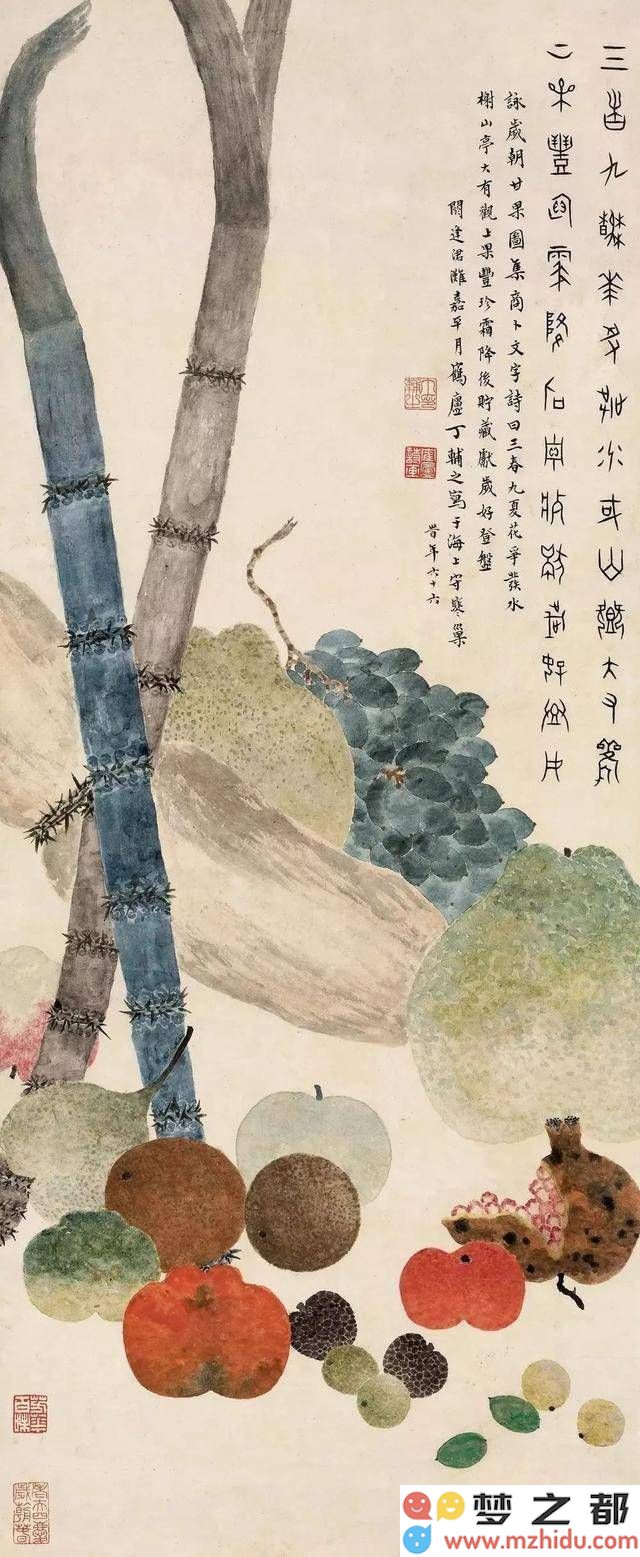 三春九夏華爭發水榭山亭大有觀
上果豐珍霜降后貯藏獻歲好登盤
詠歲朝甘果圖集商卜文字詩曰三春九夏花爭發水
榭山亭大有觀上果豐珍霜降後貯藏獻歲好登盤
閼逢涒灘嘉平月鶴廬丁輔之寫于海上守寒巢
旹年六十六
梦之都
www.mzhidu.com